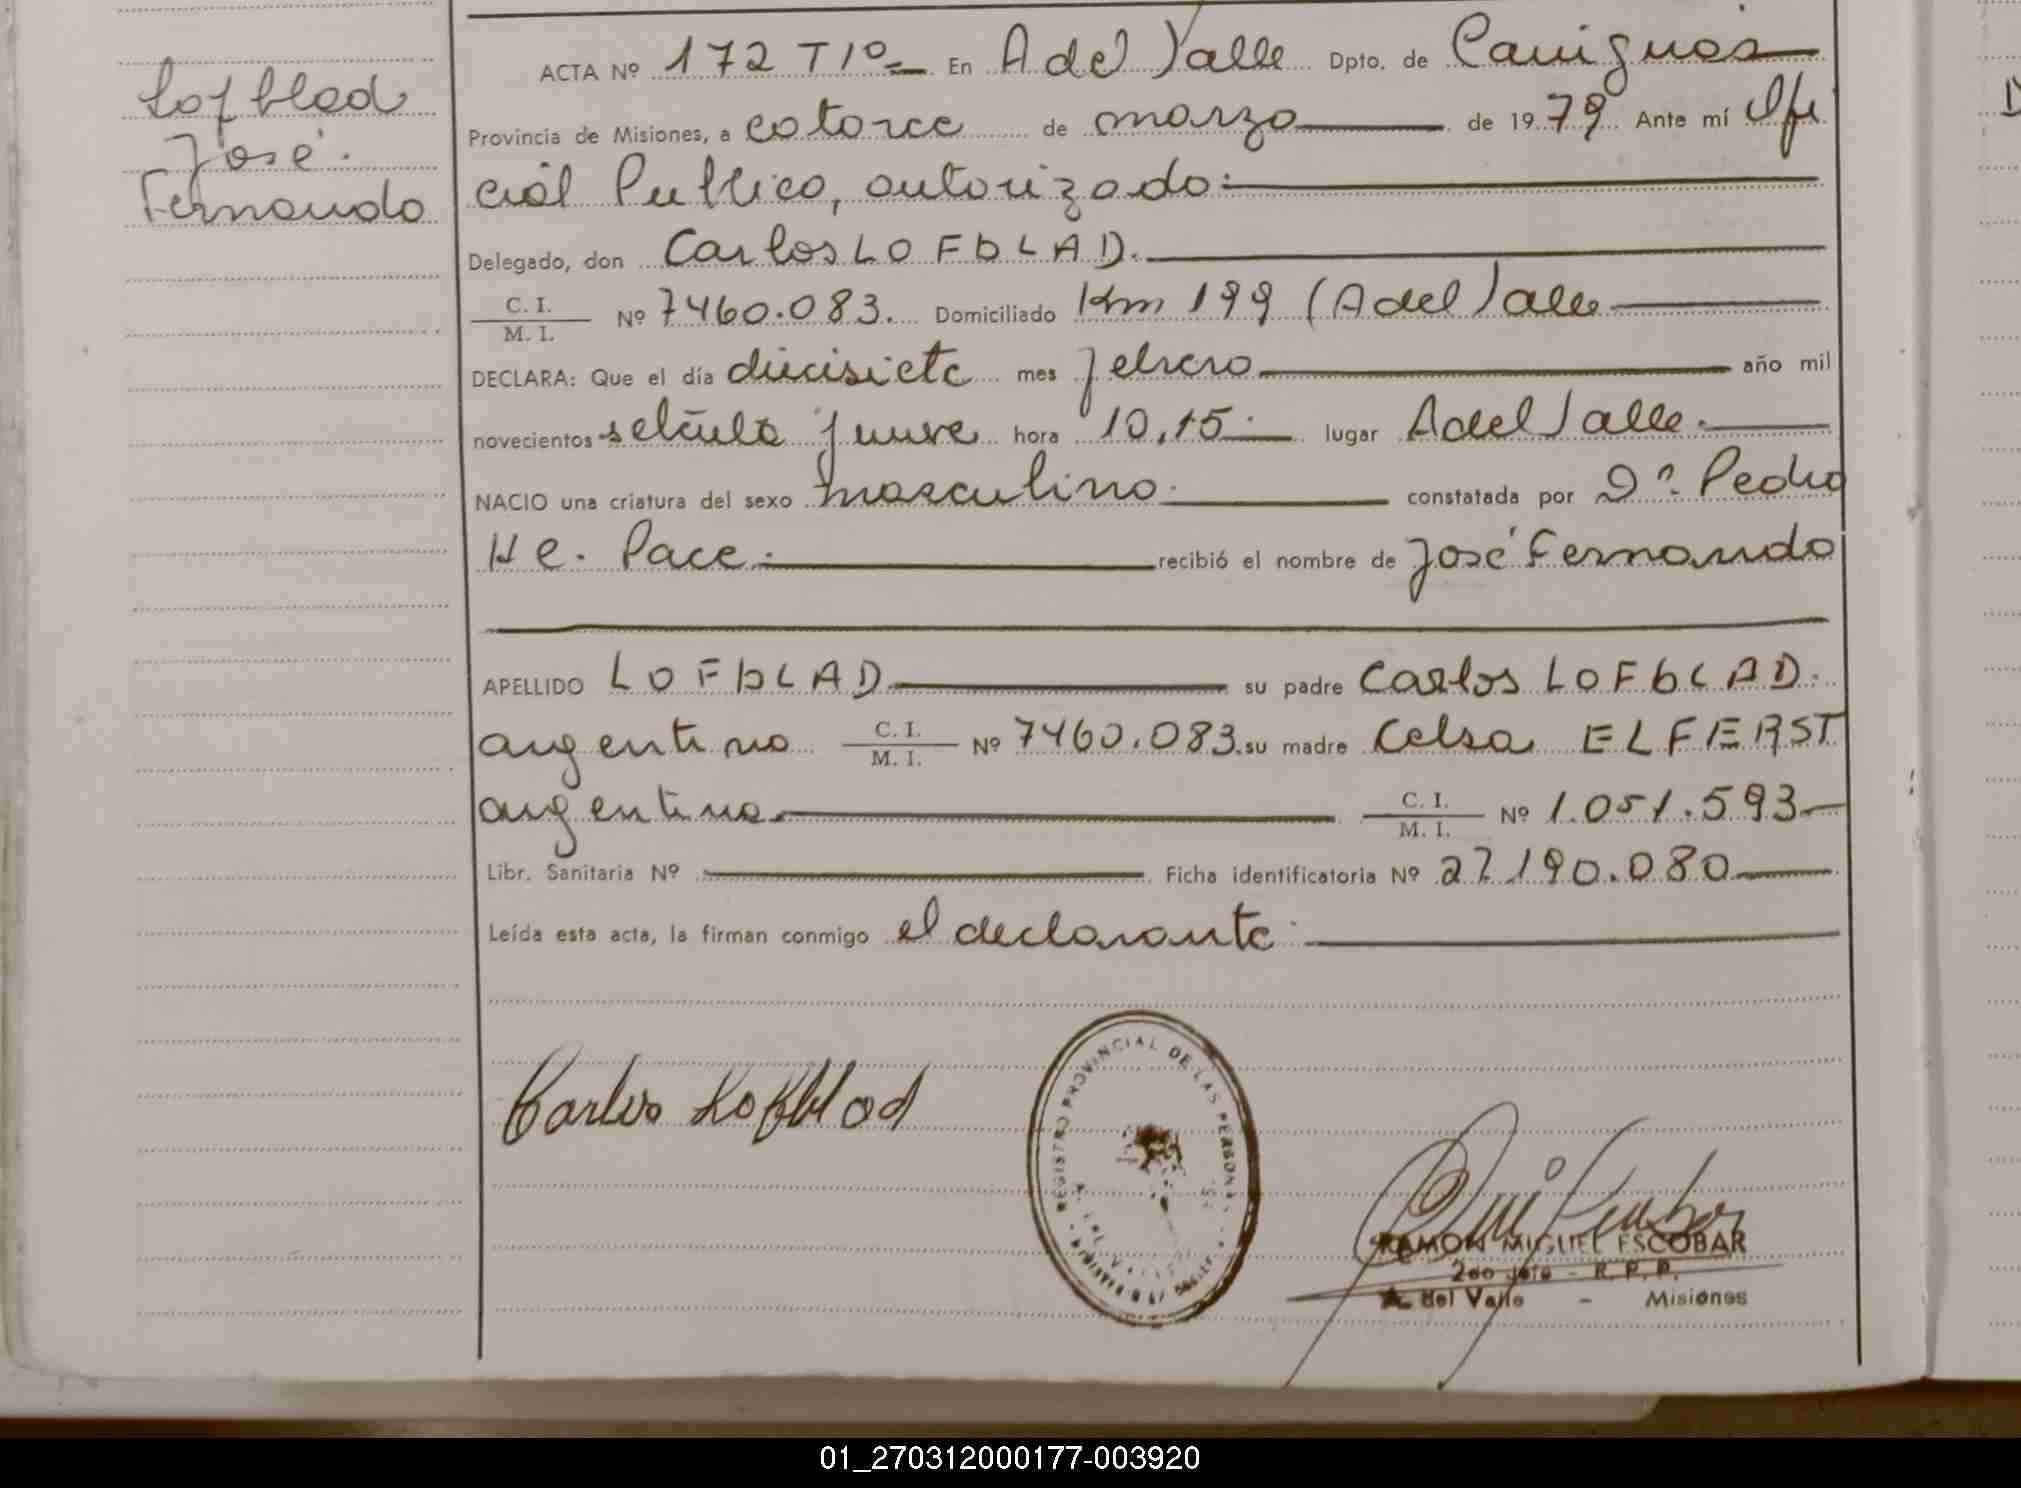 Lofblad
José
Fernando
ACTA Nº 172 T1º En A del Valle Dpto. de Cainguás
Provincia de Misiones, a catorce de marzo de 1979 Ante mí Ofi
cial Publico, autorizado:
Delegado, don Carlos LOFbLAD.
C. I. / M. I. Nº 7460.083. Domiciliado Km 199 (A del Valle
DECLARA: Que el día diecisiete mes febrero año mil
novecientos setenta y nueve hora 10,15 lugar A del Valle.
NACIO una criatura del sexo masculino. constatada por Dº. Pedro
He. Pace. recibió el nombre de José Fernando
APELLIDO LOFbLAD su padre Carlos LOFbLAD.
argentino C. I. / M. I. Nº 7460.083. su madre Celsa ELFERST
argentina. C. I. / M. I. Nº 1.051.593
Libr. Sanitaria Nº Ficha identificatoria Nº 27.190.080
Leída esta acta, la firman conmigo el declarante
Carlos Lofblad
REGISTRO PROVINCIAL DE LAS PERSONAS
RAMON MIGUEL ESCOBAR
2do Jefe - R. P. P.
A. del Valle - Misiones
01_270312000177-003920